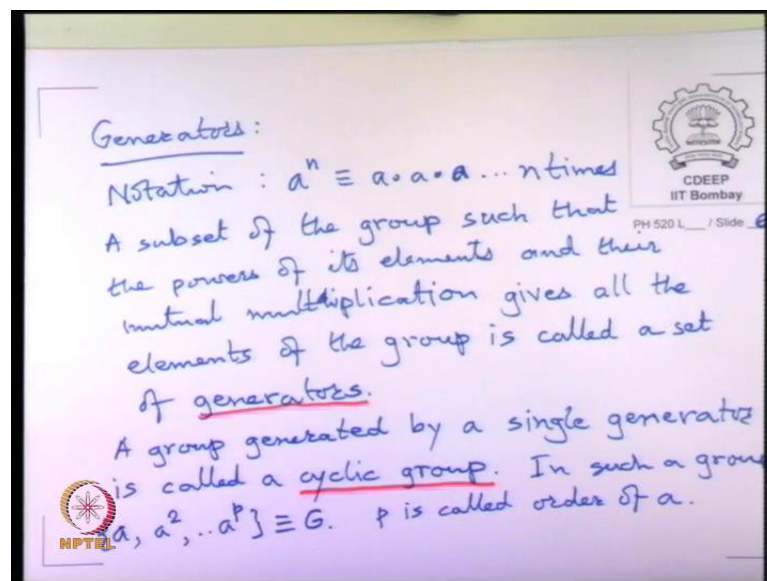 Generators:
Notation : aⁿ ≡ a • a • a ... n times
A subset of the group such that
the powers of its elements and their
mutual multiplication gives all the
elements of the group is called a set
of generators.
A group generated by a single generator
is called a cyclic group. In such a group
{a, a², .. aᵖ} ≡ G. p is called order of a.
CDEEP
IIT Bombay
PH 520 L___ / Slide 6
NPTEL